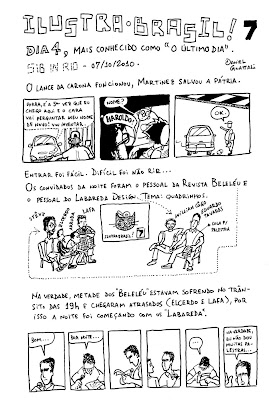 ILUSTRA·BRASIL! 7
DIA 4, MAIS CONHECIDO COMO "O ÚLTIMO DIA".
SIB IN RIO - 07/10/2010 -
DANIEL
O LANCE DA CARONA FUNCIONOU, MARTINEZ SALVOU A PÁTRIA.
VEZ QUE EU
CHEGO AQUI E O CARA
VAI PERGUNTAR MEU NOME
DE NOVO!
NOME?
HAROLDO!
OK...
ENTRAR FOI FÁCIL. DIFÍCIL FOI NÃO RIR...
OS CONVIDADOS DA NOITE FORAM O PESSOAL DA REVISTA BELELÉU E
O PESSOAL DO LABAREDA DESIGN. TEMA: QUADRINHOS.
LAFA
ILUSTRABRASIL! 7
NA VERDADE, METADE DOS "BELELÉU" ESTAVAM SOFRENDO NO TRÂN-
SITO DAS 19h E CHEGARAM ATRASADOS (ELCERDO E LAFA), POR
ISSO A NOITE FOI COMEÇANDO COM OS "LABAREDA".
BOM...
BOA NOITE...
NA VERDADE,
EU NÃO DOU
MUITAS PA-
LESTRAS...